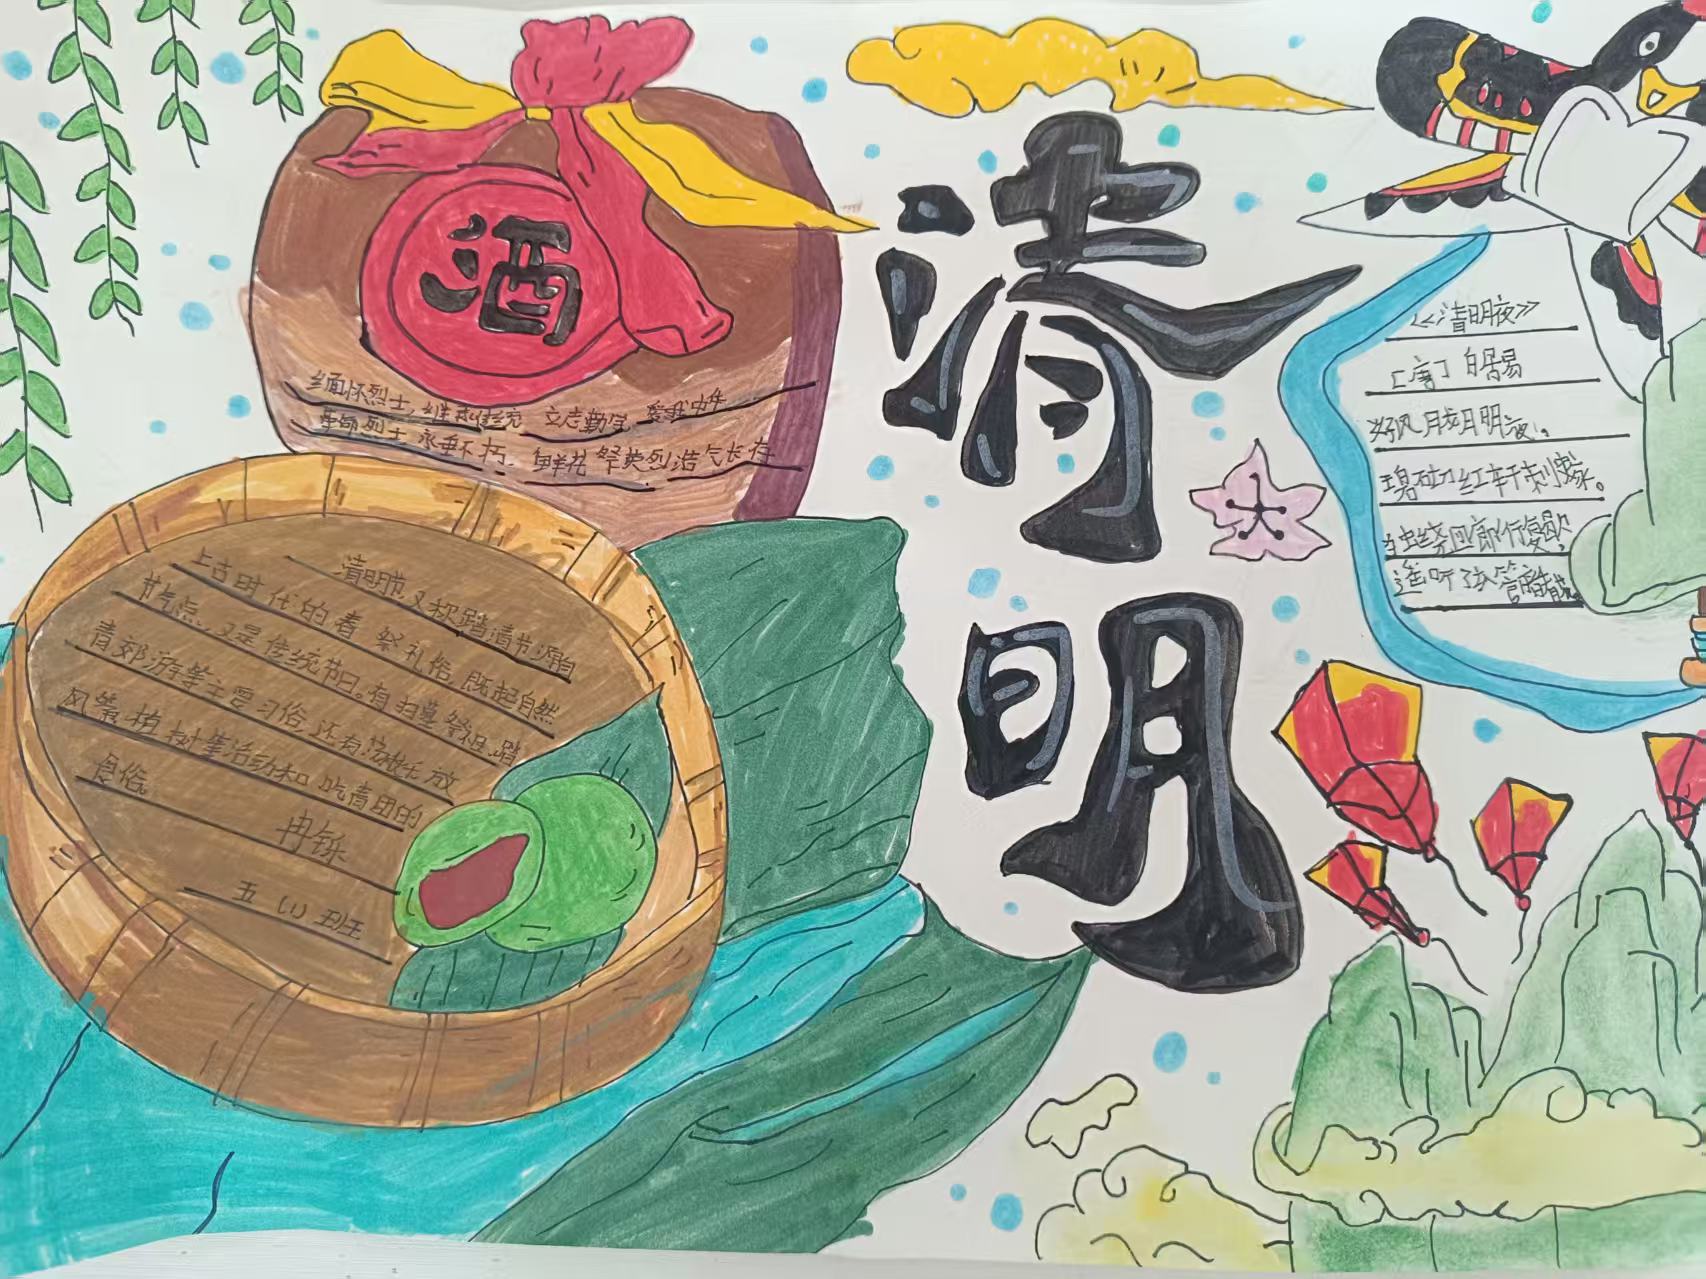 酒
缅怀烈士,继承传统 立志勤学 爱我中华
革命烈士 永垂不朽. 鲜花祭英烈 浩气长存
清明
清明节又称踏清节源自
上古时代的春祭礼俗,既起自然
节气点,又是传统节日。有扫墓祭祖、踏
青郊游等主要习俗,还有荡秋千放
风筝植树等活动和吃青团的
食俗
冉铄
五(1)班
《清明夜》
[唐]白居易
好风胧月清明夜,
碧砌红轩刺史家。
独绕回廊行复歇
遥听弦管暗看花